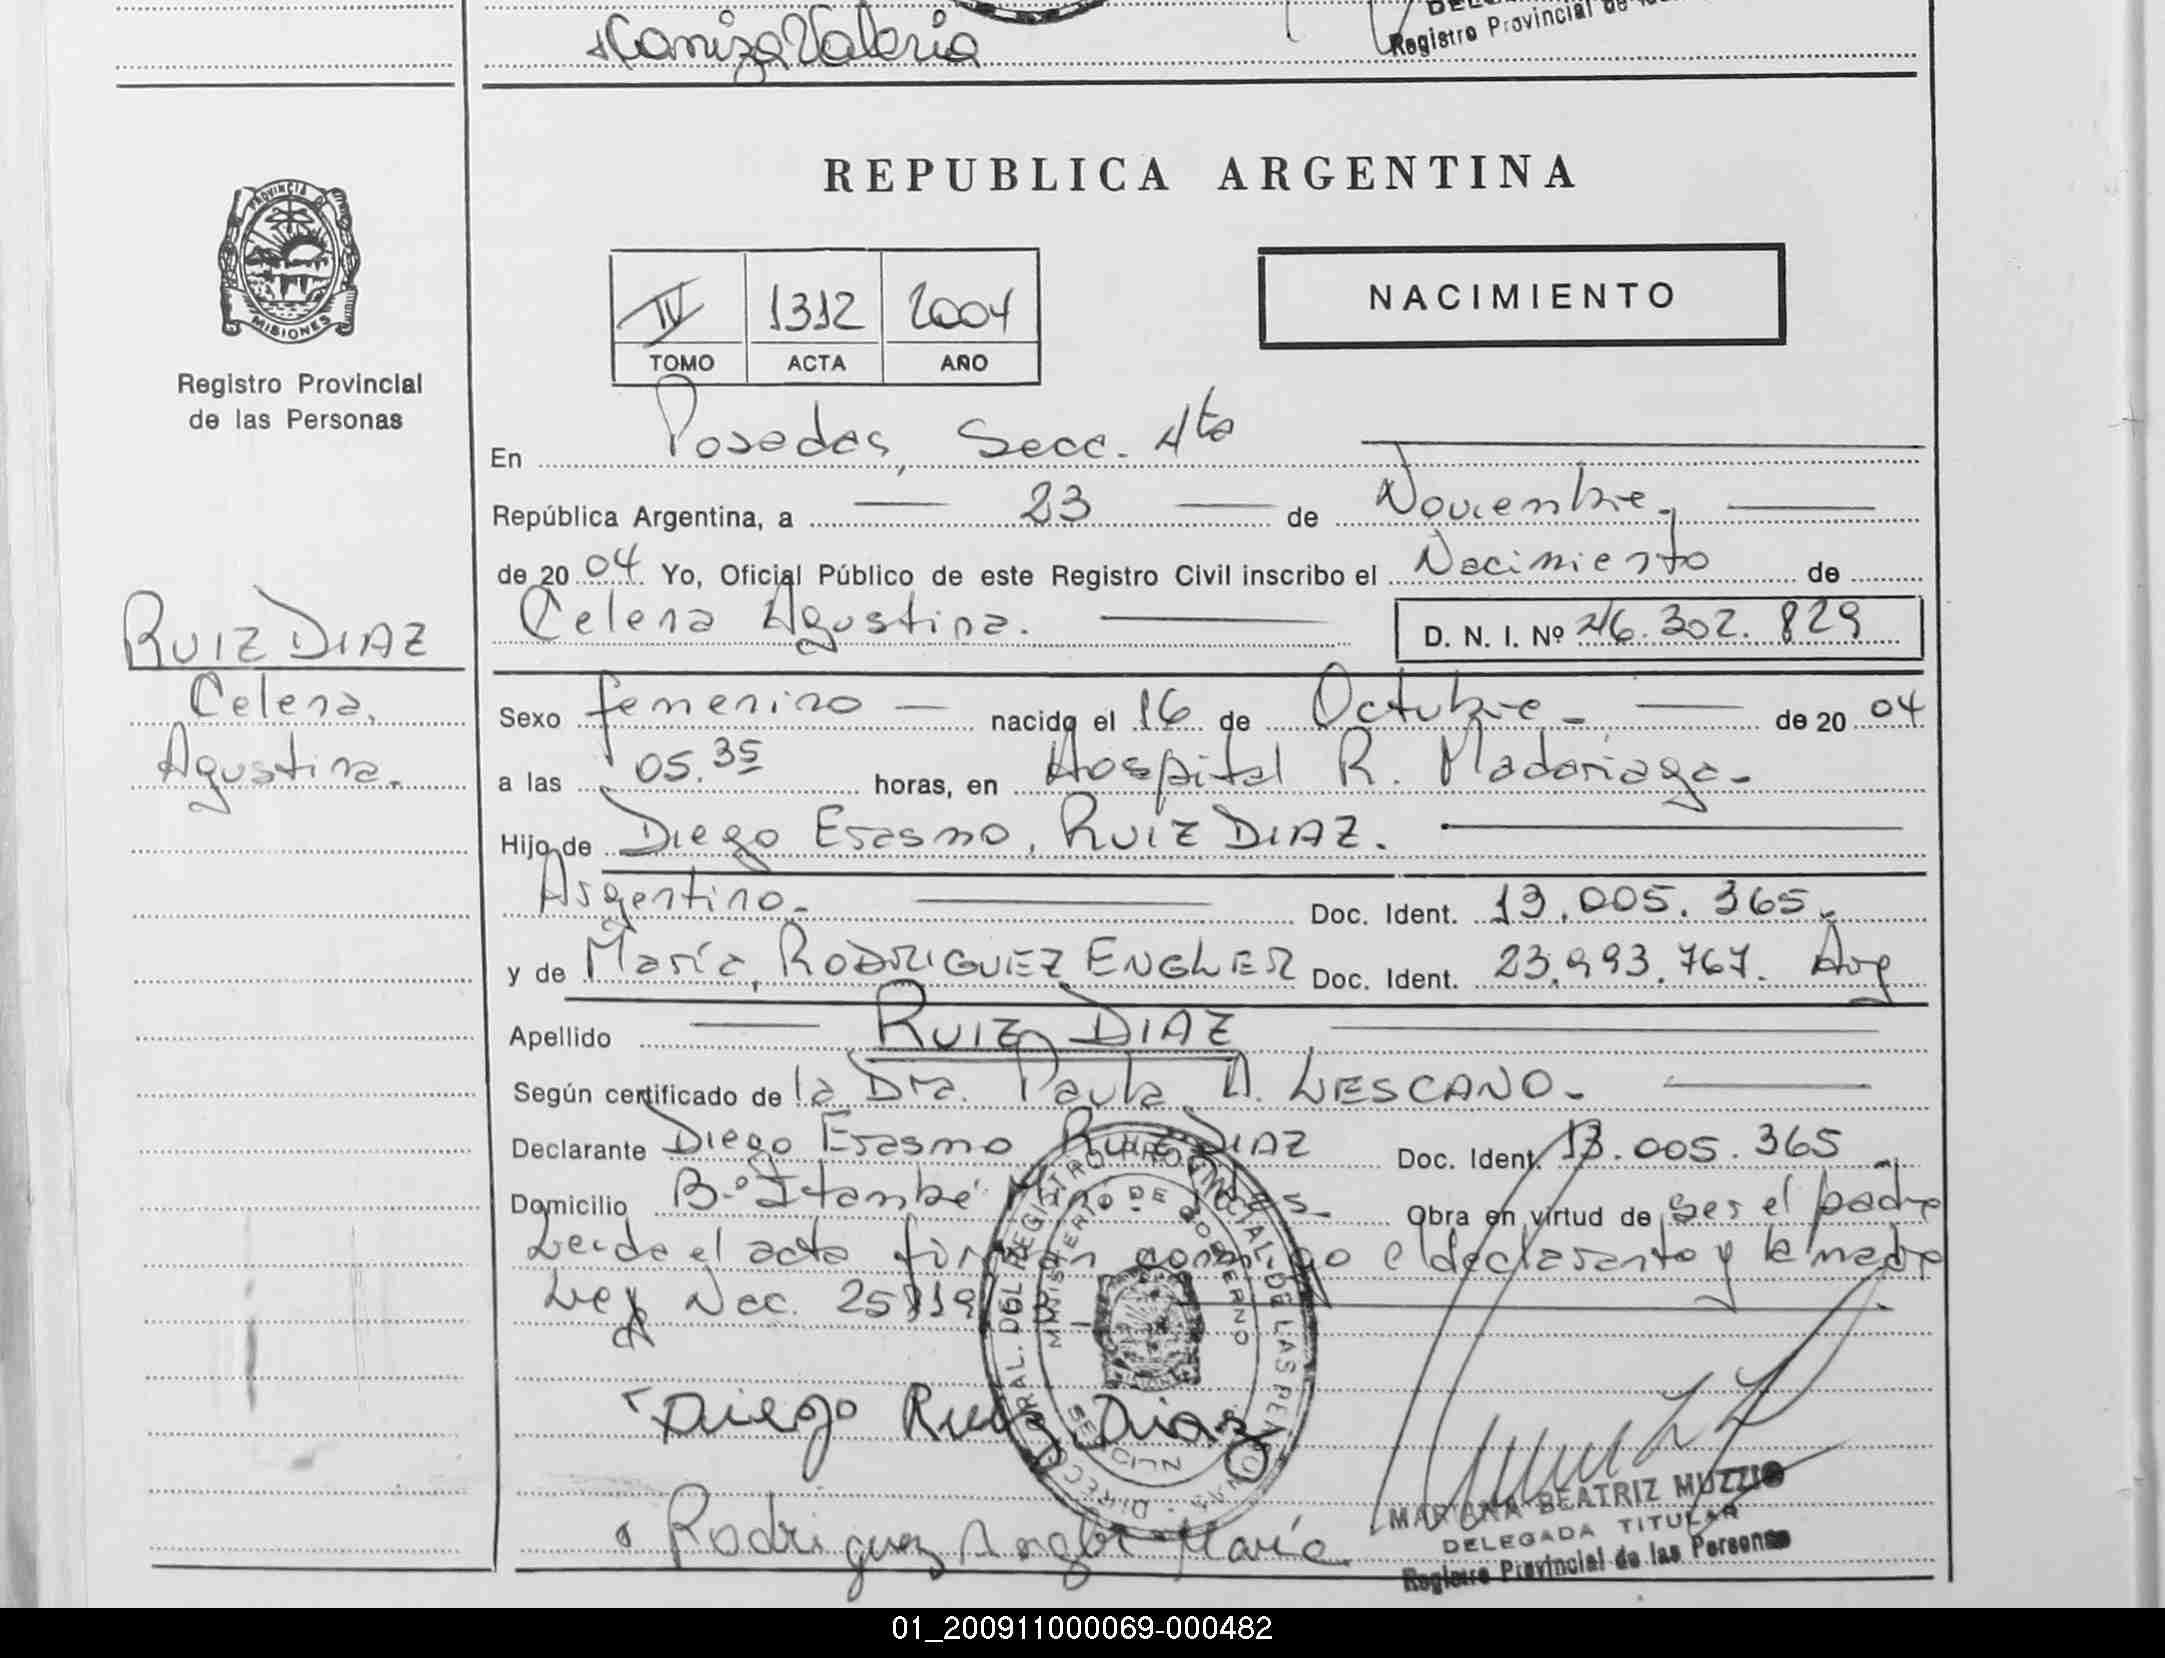 Caniza Valeria
Registro Provincial de
REPUBLICA ARGENTINA
PROVINCIA
MISIONES
Registro Provincial
de las Personas
IV 1312 2004
TOMO ACTA AÑO
NACIMIENTO
En Posadas, Secc. 4ta
República Argentina, a 23 de Noviembre
de 2004 Yo, Oficial Público de este Registro Civil inscribo el Nacimiento de
Celena Agustina. D. N. I. Nº 46.302.829
RUIZ DIAZ
Celena,
Agustina.
Sexo femenino nacido el 16 de Octubre de 2004
a las 05.35 horas, en Hospital R. Madariaga
Hijo de Diego Erasmo, RUIZ DIAZ.
Argentino Doc. Ident. 13.005.365.
y de María, RODRIGUEZ ENGLER Doc. Ident. 23.993.767. Arg
Apellido RUIZ DIAZ
Según certificado de la Dra. Paula A. LESCANO
Declarante Diego Erasmo RUIZ DIAZ Doc. Ident. 13.005.365
Domicilio B.º Itambé Obra en virtud de ser el padre
Leida el acta firman conmigo el declarante y la madre
Ley Nac.
Diego Ruiz Diaz
Rodriguez Engler María
MINISTERIO DE GOBIERNO
MARIANA BEATRIZ MUZZIO
DELEGADA TITULAR
Registro Provincial de las Personas
01_200911000069-000482